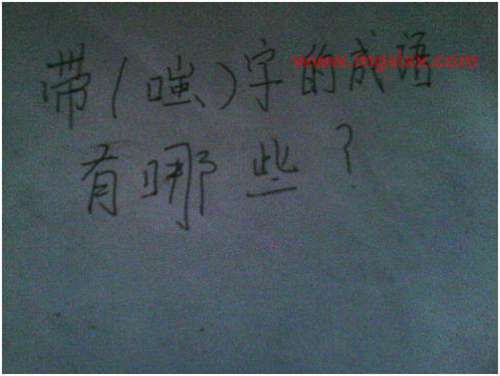 带(嗤)字的成语
www.mgslxx.com
有哪些?